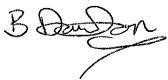 B Dawson